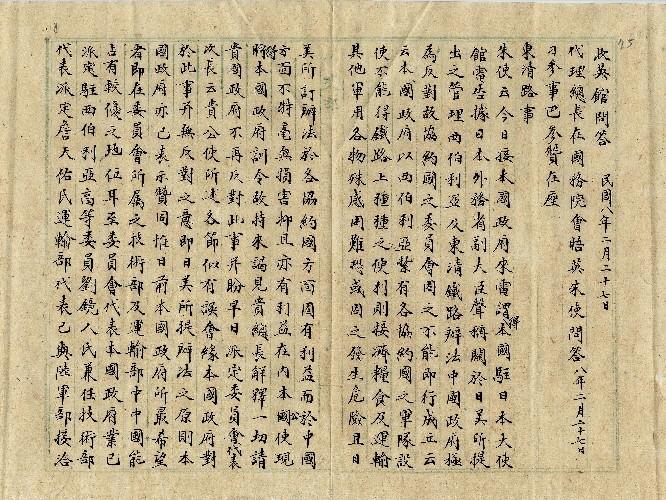 75
收英館問答 民國八年二月二十七日
代理總長在國務院會晤英朱使問答 八年二月二十七日
刁參事巴參贊在座
東清路事
朱使云今日接本國政府來電謂得本國駐日本大使
館電依據日本外務省副大臣聲稱關於日美所提
出之管理西伯利亞及東清鐵路辦法中國政府極
為反對故協約國之委員會因之不能即行成立云
云本國政府以西伯利亞紮有各協約國之軍隊設
使不能得鐵路上種種之便利則接濟糧食及運輸
其他軍用各物殊感困難恐或因之發生危險且日
美所訂辦法於各協約國方面固有利益而於中國
方面不特毫無損害抑且亦有利益在內本公使現
將得本國政府訓令故特來謁見貴總長解釋一切請
貴國政府不再反對此事並盼早日派定委員會代表
次長云貴公使所述各節似有誤會緣本國政府對
於此事并無反對之意即日美所提辦法之原則本
國政府亦已表示贊同惟日前本國政府所最希望
者即在委員會所屬之技術部及運輸部中中國能
占有較優之地位耳至委員會代表本國政府業已
派定駐西伯利亞高等委員劉鏡人氏兼任技術部
代表派定詹天佑氏運輸部代表已與陸軍部接洽